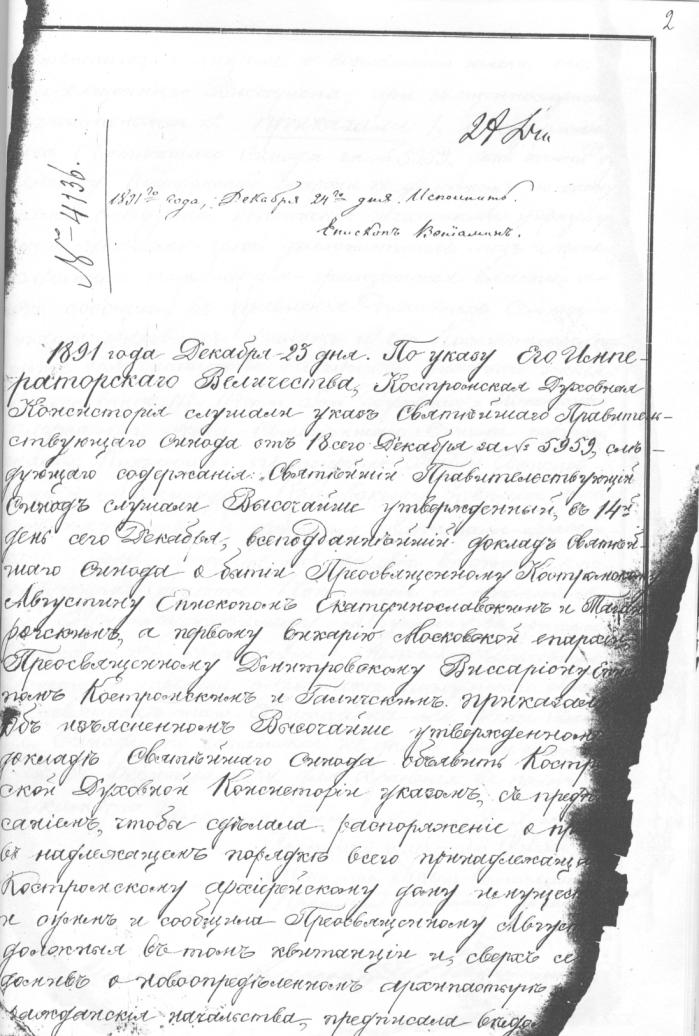 2
24 Дек.
№ 4136.
1891го года, Декабря 24го дня. Исполнить.
Епископъ Веніаминъ.
1891 года Декабря 23 дня. По указу Его Импе-
раторскаго Величества, Костромская Духовная
Консисторія слушали указъ Святѣйшаго Правитель-
ствующаго Синода отъ 18 сего Декабря за № 5959, слѣ-
дующаго содержанія: Святѣйшій Правительствующій
Синодъ слушали Высочайше утвержденный, въ 14й
день сего Декабря, всеподданнѣйшій докладъ Святѣй-
шаго Синода о бытіи Преосвященному Костромскому
Августину Епископомъ Екатеринославскимъ и Таган
рогскимъ, а первому викарію Московской епархіи
Преосвященному Дмитровскому Виссаріону Епи
помъ Костромскимъ и Галичскимъ. приказали
Объ изъясненномъ Высочайше утвержденномъ
докладѣ Святѣйшаго Синода объявить Костро
ской Духовной Консисторіи указомъ, съ предпи
саніемъ, чтобы сдѣлала распоряженіе о пр
въ надлежащемъ порядкѣ всего принадлежаща
Костромскому архіерейскому дому имущест
и суммъ и сообщила Преосвященному Август
должныя въ томъ квитанціи и, сверхъ се
домивъ о новоопредѣленномъ архипастырѣ
гражданскія начальства, предписала